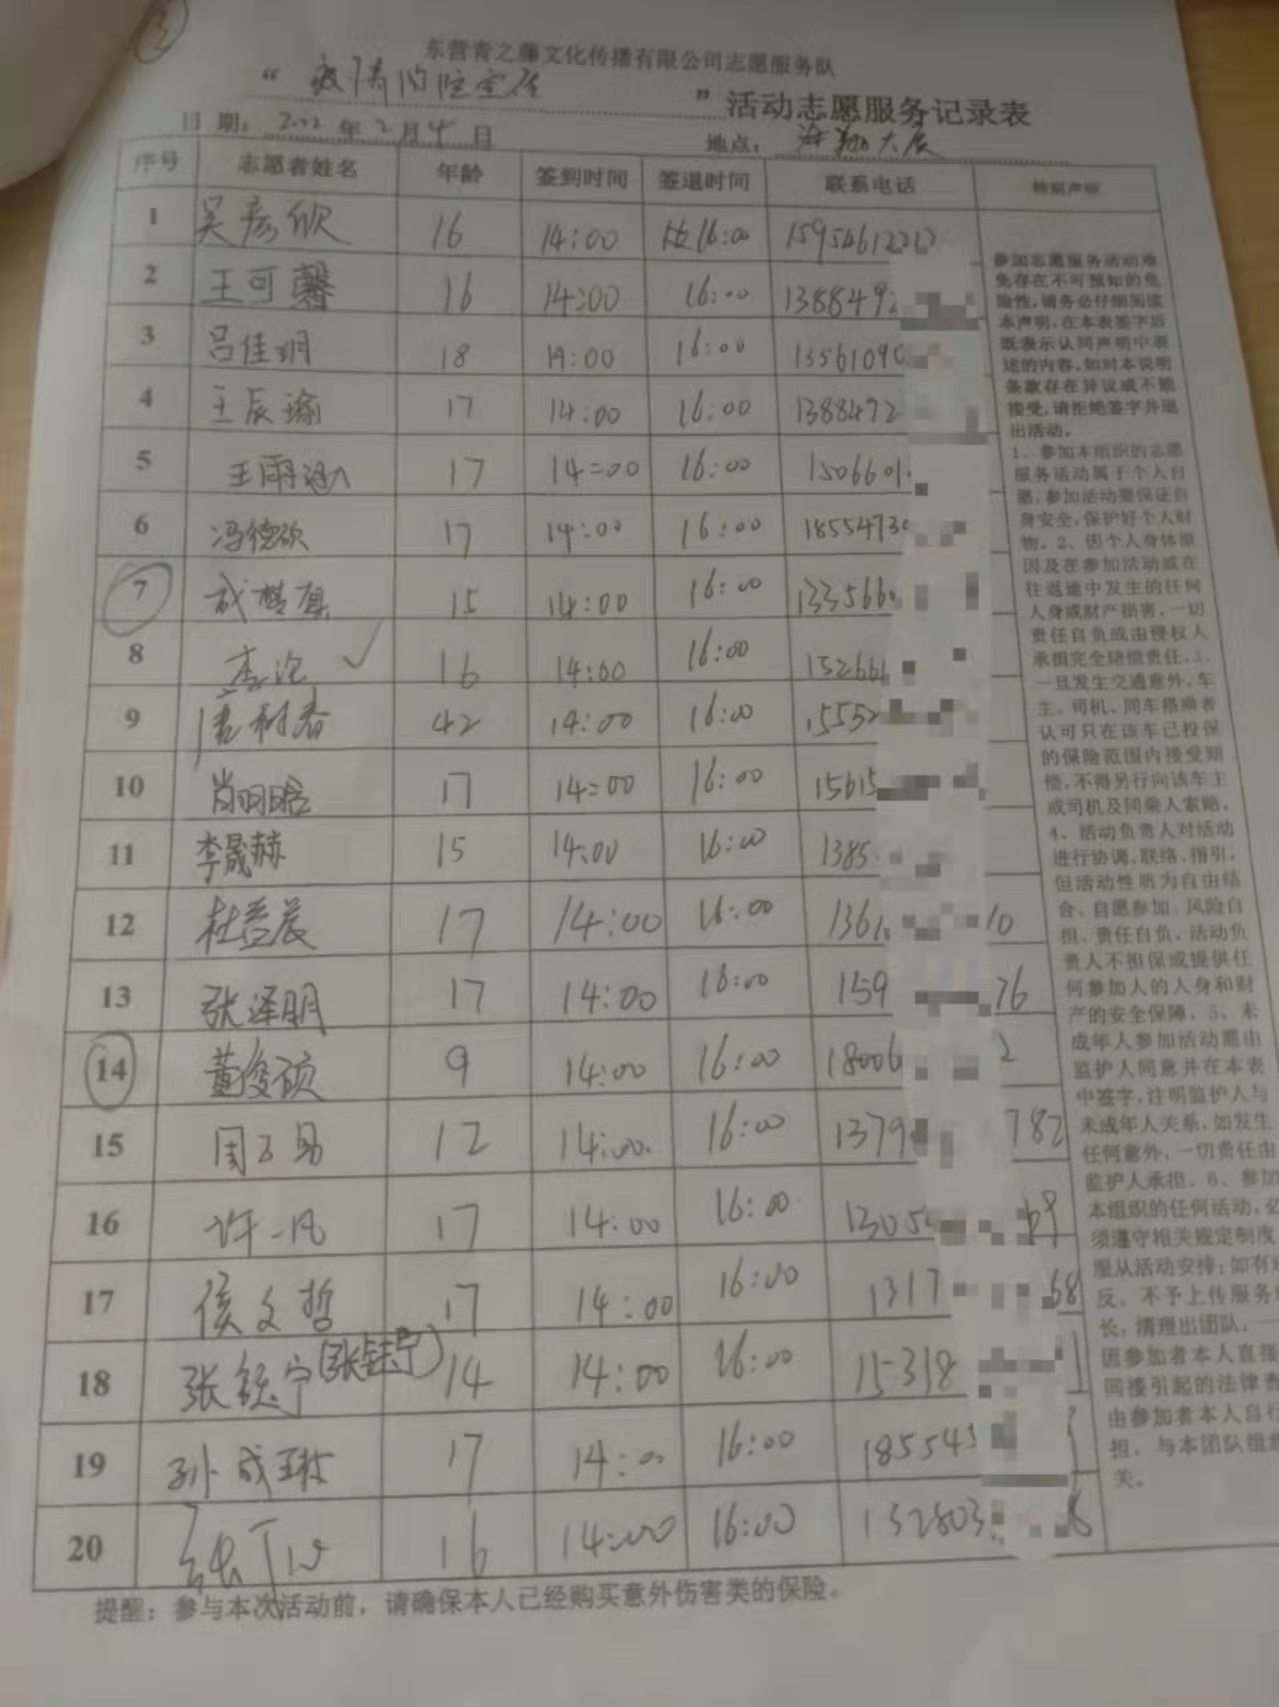 东营青之藤文化传播有限公司志愿服务队
“疫情防控宣传”活动志愿服务记录表
日期：2022年2月4日 地点：海翔大厦
序号 志愿者姓名 年龄 签到时间 签退时间 联系电话 特别声明
1 吴彦欣 16 14:00 16:00
2 王可馨 16 14:00 16:00 138849
3 吕佳玥 18 14:00 16:00 1356109
4 王辰瑜 17 14:00 16:00 1388492
5 王雨涵 17 14:00 16:00 1506601
6 冯德硕 17 14:00 16:00 1855473
7 成楚 15 14:00 16:00 133566
8 李 16 14:00 16:00 15266
9 42 14:00 16:00 1555
10 肖明晗 17 14:00 16:00 15615
11 李晟赫 15 14:00 16:00 1385
12 杜益晨 17 14:00 16:00 1361 10
13 张泽明 17 14:00 16:00 159 76
14 董俊硕 9 14:00 16:00 18006 2
15 周子易 12 14:00 16:00 1379 782
16 许一凡 17 14:00 16:00 1305 69
17 侯文哲 17 14:00 16:00 1317 68
18 张钰宁(张钰宁) 14 14:00 16:00 15318
19 孙成琳 17 14:00 16:00 18554
20 张 16 14:00 16:00 132803
参加志愿服务活动难
免存在不可预知的危
险性，请务必仔细阅读
本声明，在本表签字后
既表示认同声明中表
述的内容，如对本说明
条款存在异议或不能
接受，请拒绝签字并退
出活动。
1、参加本组织的志愿
服务活动属于个人自
愿，参加活动要保证自
身安全，保护好个人财
物。2、因个人身体原
因及在参加活动或在
往返途中发生的任何
人身或财产损害，一切
责任自负或由侵权人
承担完全赔偿责任。3、
一旦发生交通意外，车
主、司机、同车搭乘者
认可只在该车已投保
的保险范围内接受赔
偿，不得另行向该车主
或司机及同乘人索赔。
4、活动负责人对活动
进行协调、联络、指引，
但活动性质为自由结
合、自愿参加、风险自
担、责任自负，活动负
责人不担保或提供任
何参加人的人身和财
产的安全保障。5、未
成年人参加活动需由
监护人同意并在本表
中签字，注明监护人与
未成年人关系，如发生
任何意外，一切责任由
监护人承担。6、参加
本组织的任何活动，必
须遵守相关规定制度
服从活动安排；如有
反，不予上传服务
长，清理出团队。一
因参加者本人直接
间接引起的法律责
由参加者本人自行
担，与本团队组织
关。
提醒：参与本次活动前，请确保本人已经购买意外伤害类的保险。